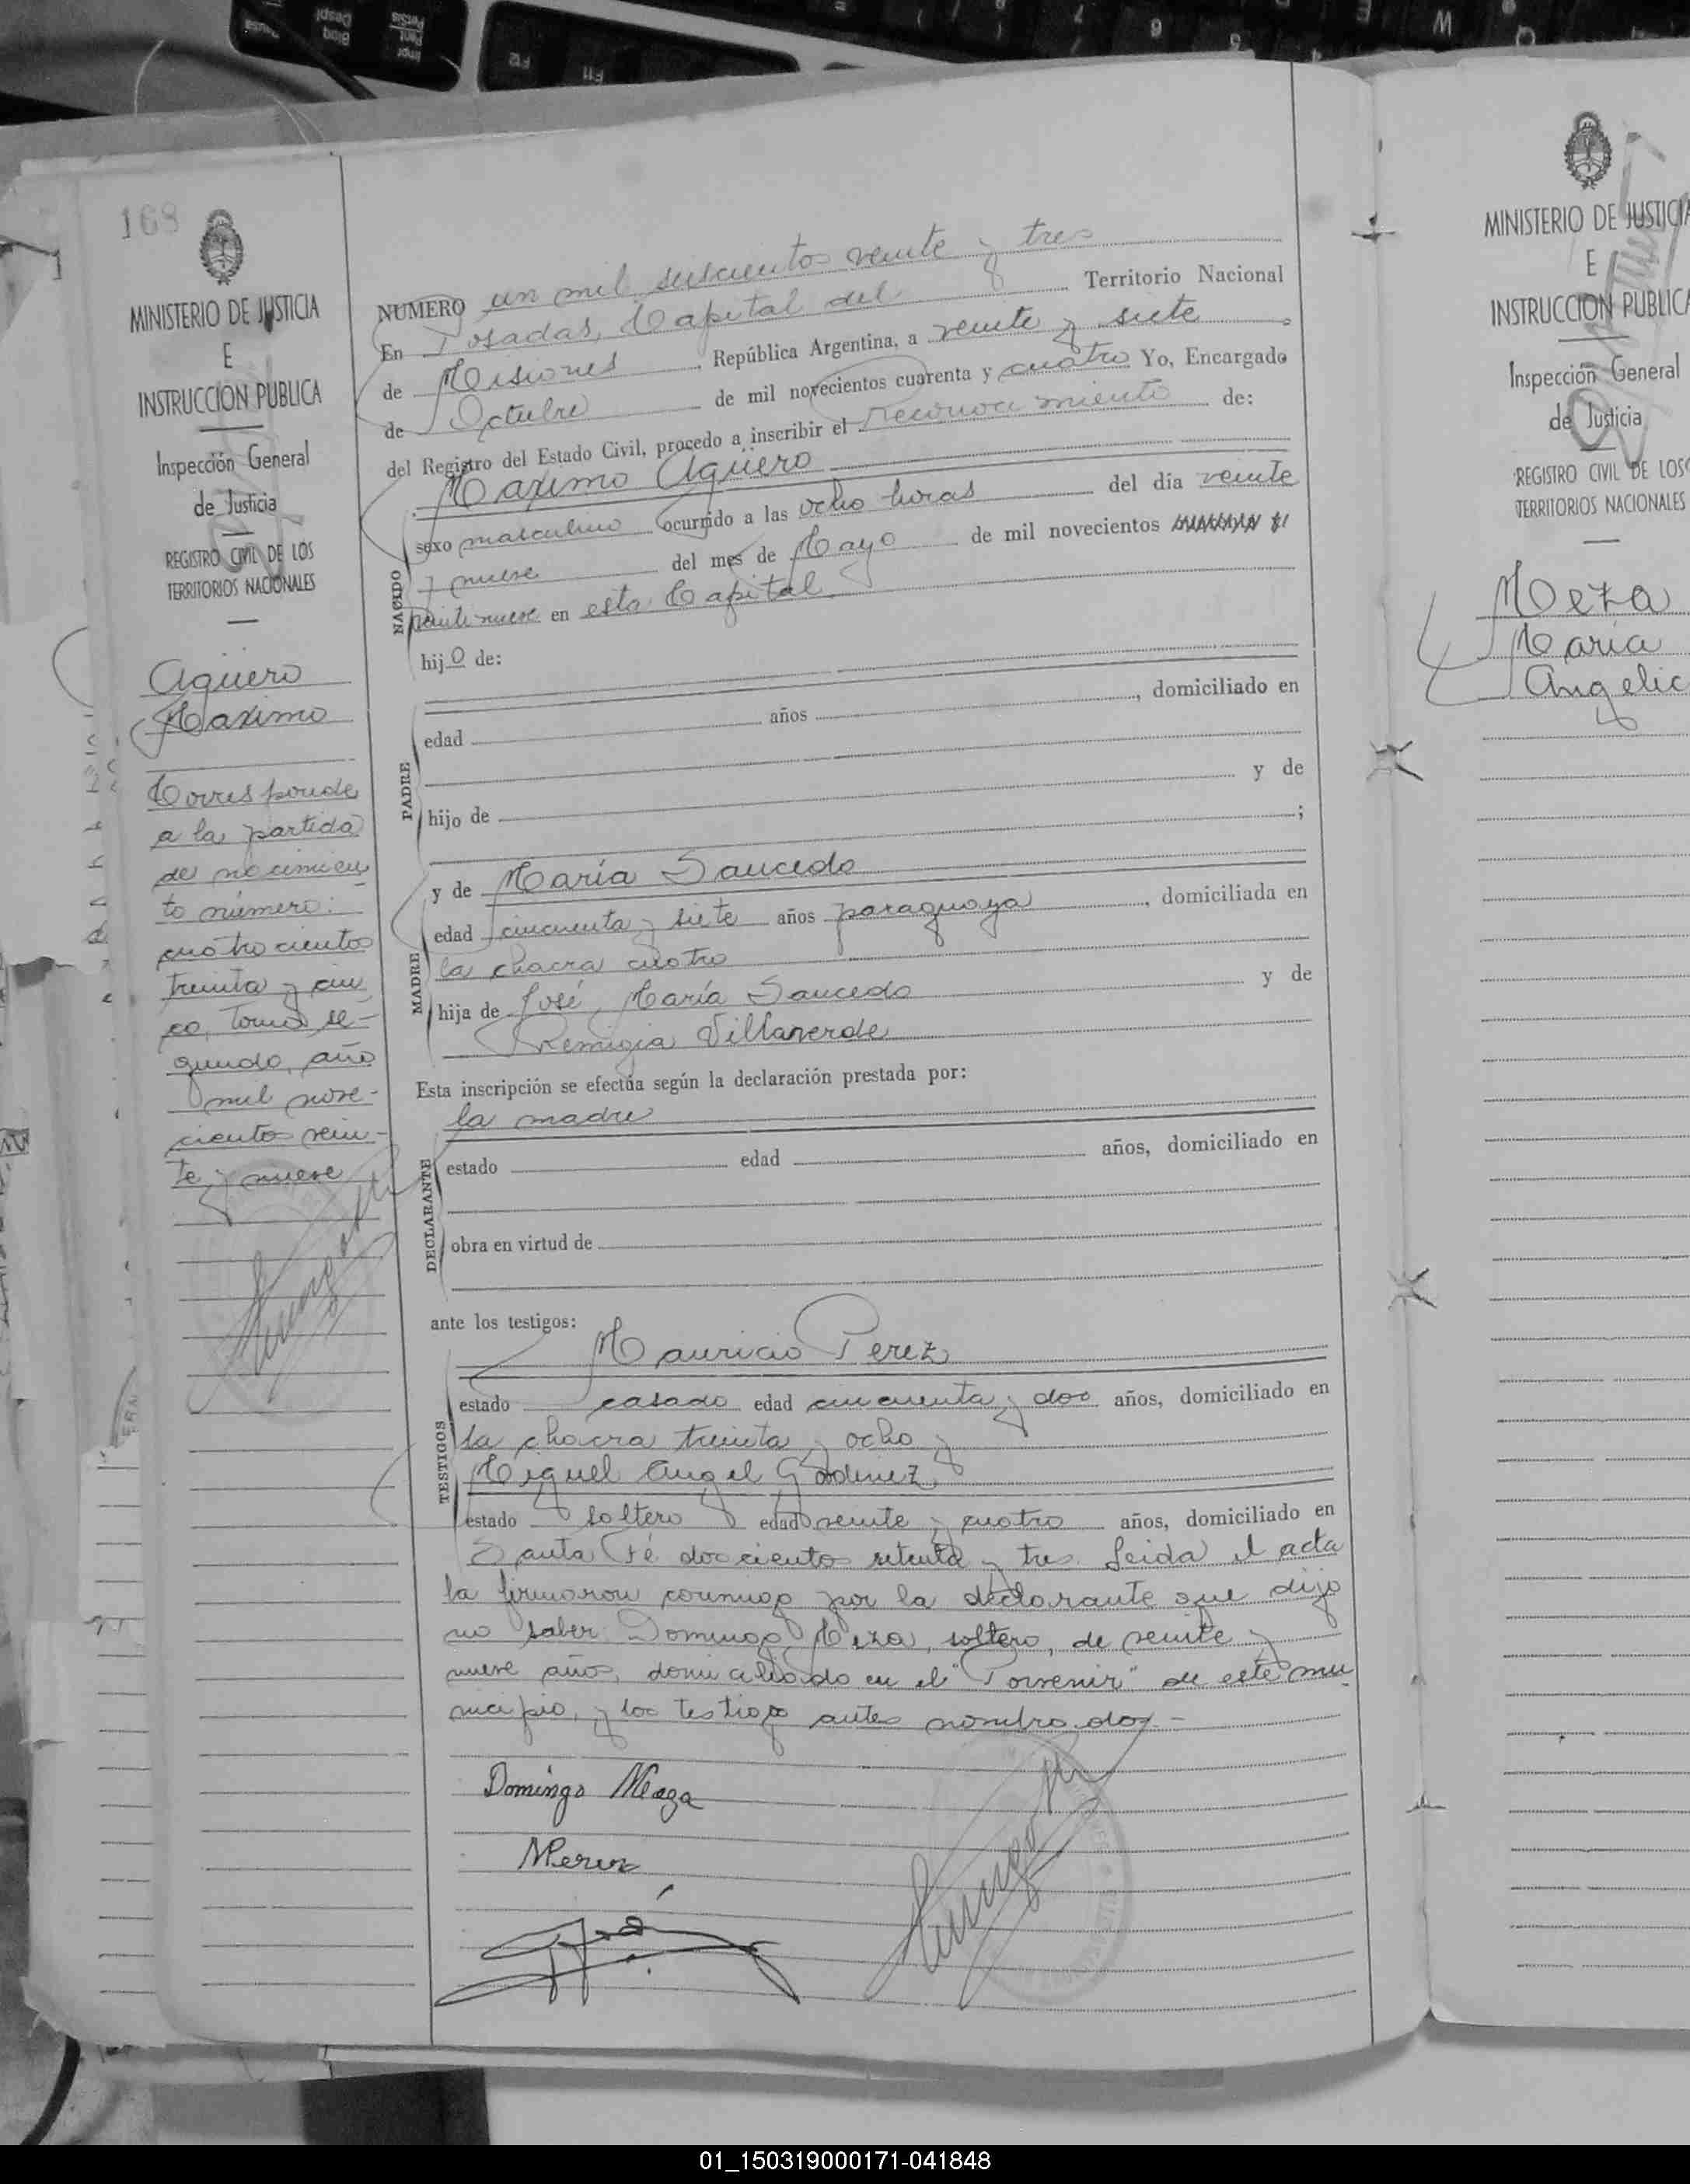 168
MINISTERIO DE JUSTICIA
E
INSTRUCCION PUBLICA
Inspección General
de Justicia
REGISTRO CIVIL DE LOS
TERRITORIOS NACIONALES
Aguero
Maximo
Corresponde
a la partida
de nacimien
to número:
cuatrocientos
treinta y cin
co, tomo se-
gundo, año
mil nove-
ciento vein-
te y nueve
NUMERO un mil seiscientos veinte y tres
En Posadas, Capital del Territorio Nacional
de Misiones, República Argentina, a veinte y siete
de Octubre de mil novecientos cuarenta y cuatro Yo, Encargado
del Registro del Estado Civil, procedo a inscribir el reconocimiento de:
Maximo Agüero
NACIDO
sexo masculino ocurrido a las ocho horas del día veinte
y nueve del mes de Mayo de mil novecientos
veintinueve en esta Capital.
hijo de:
PADRE
edad años , domiciliado en
hijo de y de
;
MADRE
y de María Saucedo
edad cincuenta y siete años paraguaya, domiciliada en
la chacra cuatro
hija de José María Saucedo y de
Remigia Villaverde
Esta inscripción se efectúa según la declaración prestada por:
la madre
DECLARANTE
estado edad años, domiciliado en
obra en virtud de
ante los testigos:
TESTIGOS
Mauricio Perez
estado casado edad cincuenta y dos años, domiciliado en
la chacra treinta y ocho y
Miguel Angel Godinez
estado soltero edad veinte y cuatro años, domiciliado en
Santa Fé doscientos setenta y tres. Leida el acta
la firmaron conmigo por la declarante que dijo
no saber Domingo Meza, soltero, de veinte y
nueve años, domiciliado en el "Porvenir" de este mu
nicipio, y los testigos antes nombrados.-
Domingo Meza
MPerez
MINISTERIO DE JUSTICIA
E
INSTRUCCION PUBLICA
Inspección General
de Justicia
REGISTRO CIVIL DE LOS
TERRITORIOS NACIONALES
Meza
Maria
Angelic
01_150319000171-041848